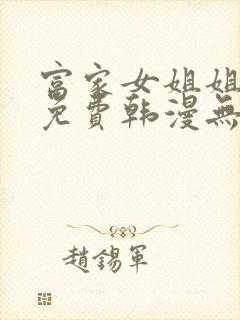 富家女姐姐
免費韩漫無
趙錫軍